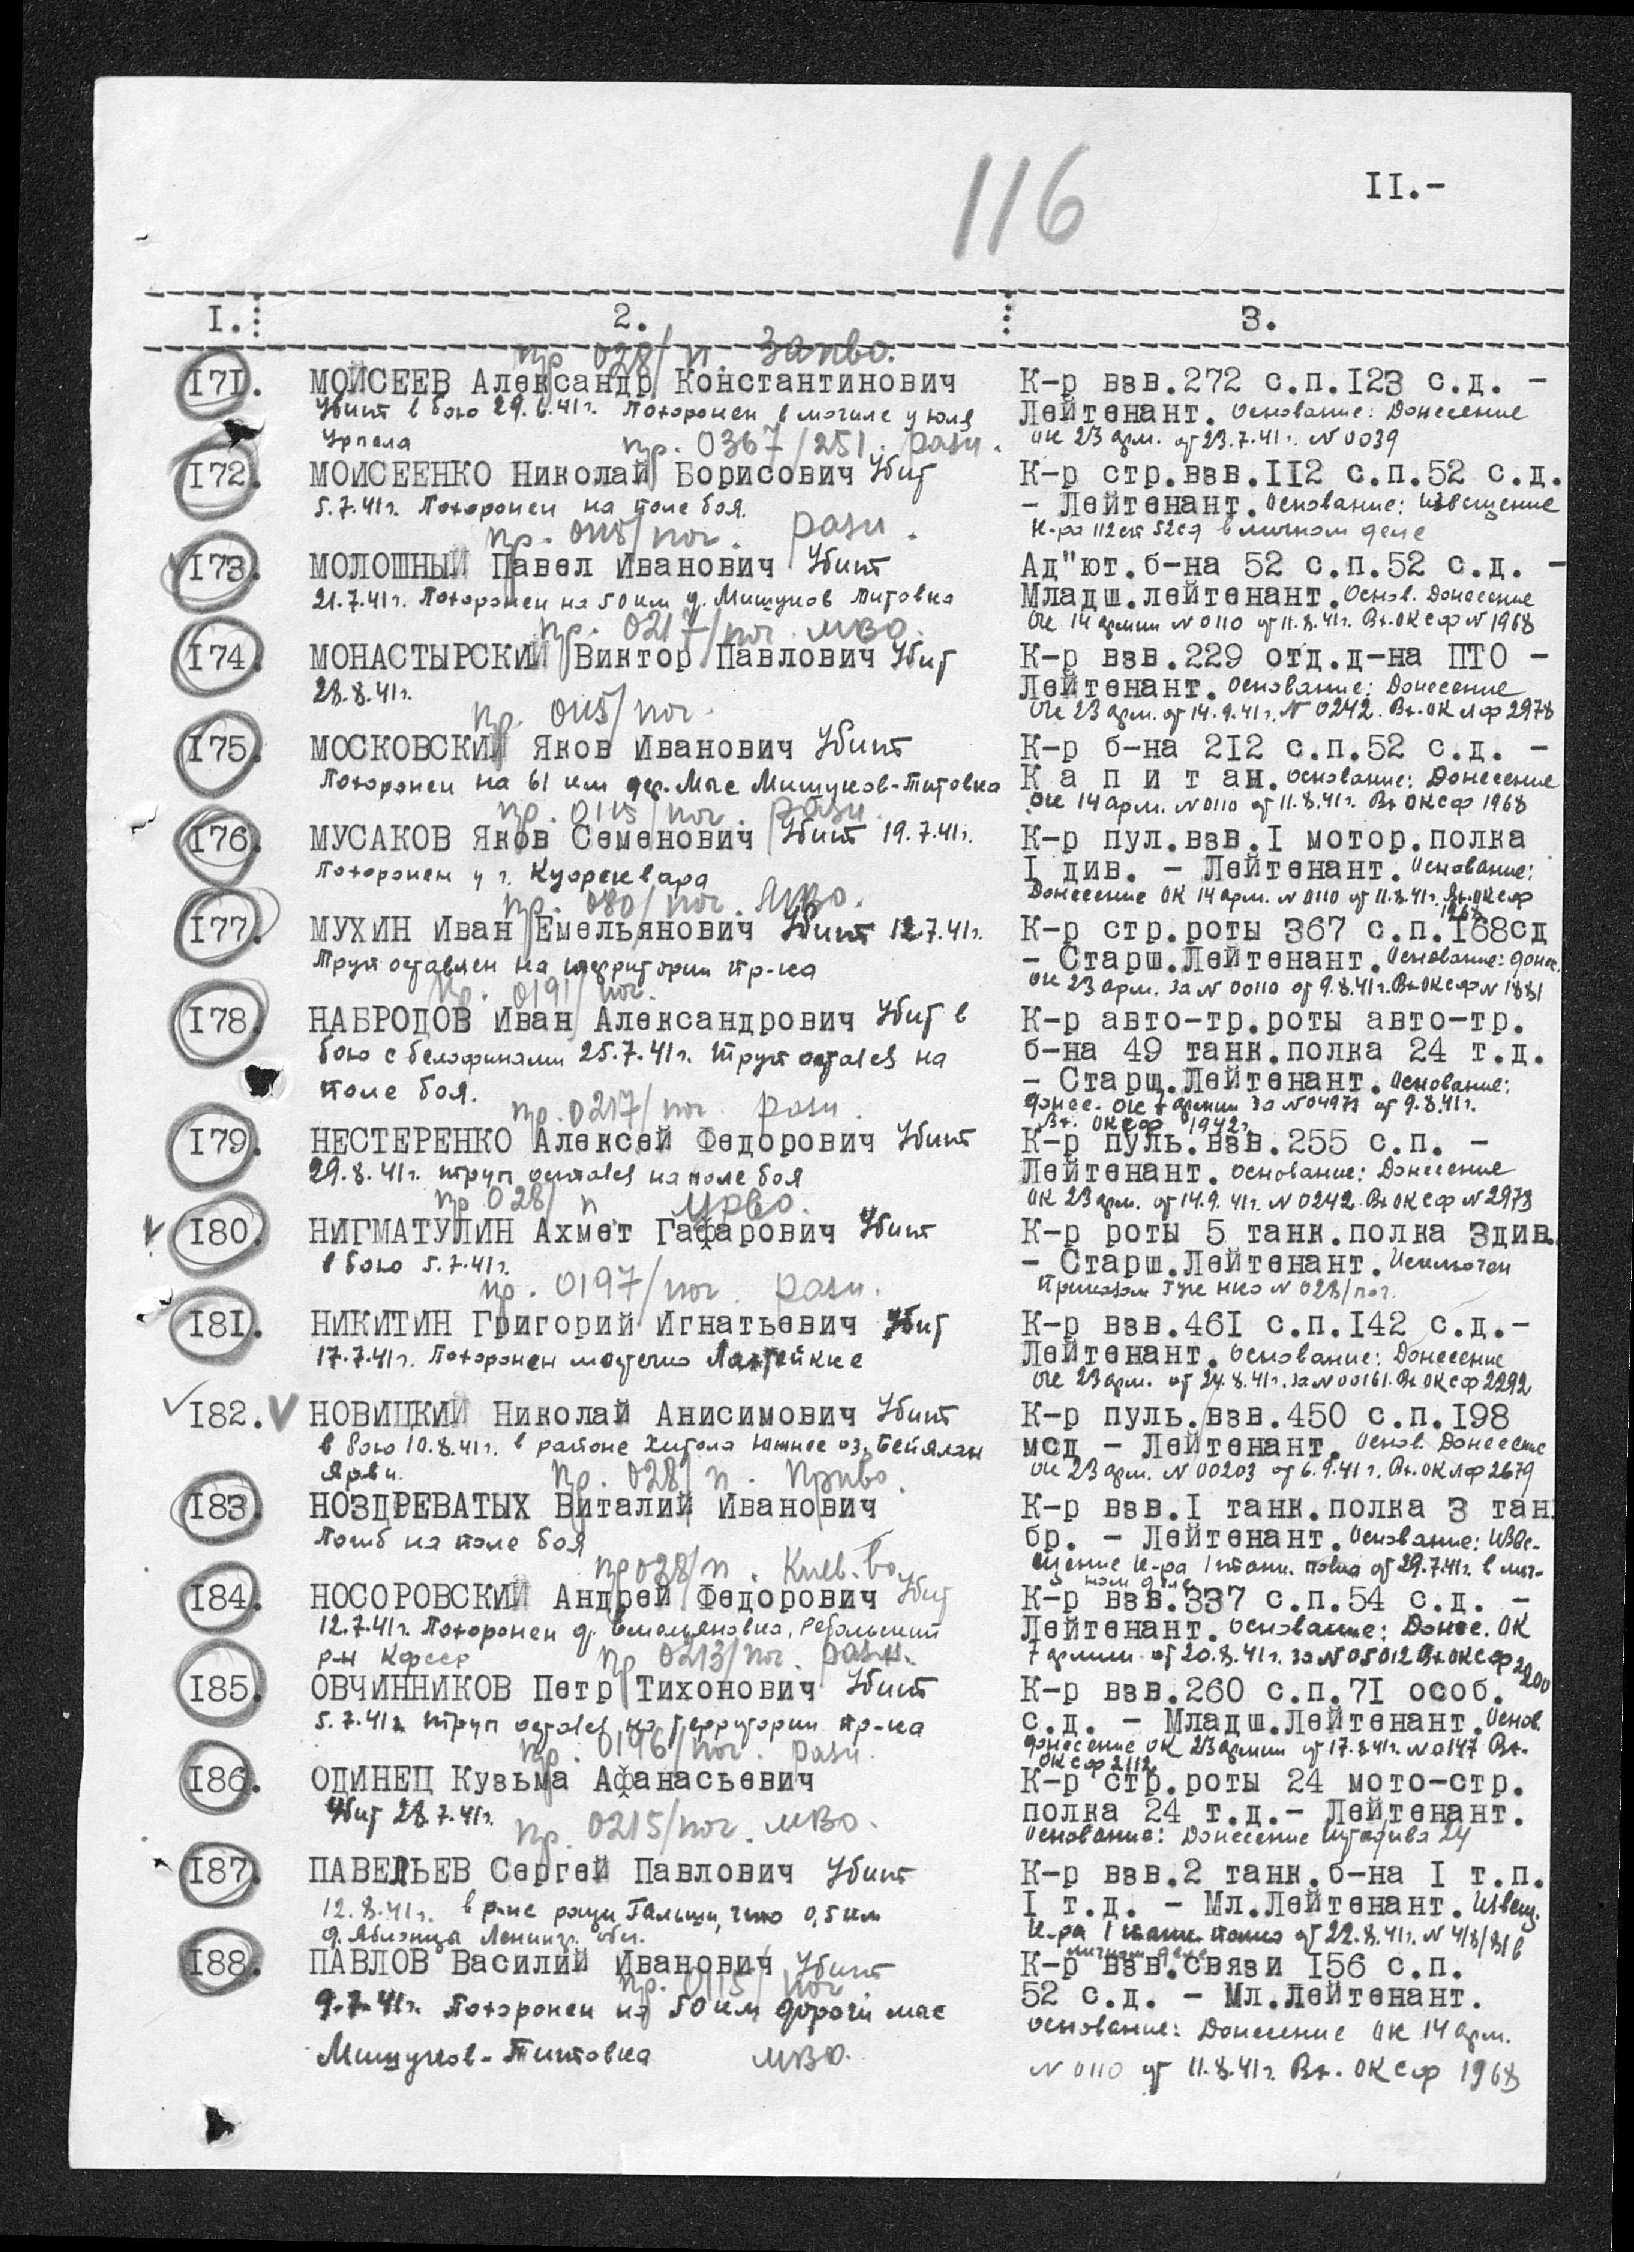 116
II.-
I.
2.
3.
пр 028/п. Запво.
I7I.
МОЙСЕЕВ Александр Константинович
Убит в бою 29.6.41г. Похоронен в могиле у
Урпала
К-р взв.272 с.п.I23 с.д. -
Лейтенант. Основание: Донесение
ОК 23 арм. от 23.7.41г. N 0039
пр. 0367/251. разн.
I72.
МОИСЕЕНКО Николай Борисович Убит
5.7.41г. Похоронен на поле боя.
К-р стр.взв.II2 с.п.52 с.д.
- Лейтенант. Основание: извещение
к-ра 112сп 52сд в личном деле
пр. 0115/пог. разн.
I73.
МОЛОШНЫЙ Павел Иванович Убит
21.7.41г. Похоронен на 50 км д. Мишуков Титовка
Ад"ют.б-на 52 с.п.52 с.д. -
Младш.лейтенант. Основ. Донесение
ОК 14 армии N 0110 от 11.8.41г. Вх.ОКСф N 1968
пр. 0217/пог. МВО.
I74.
МОНАСТЫРСКИЙ Виктор Павлович Убит
28.8.41г.
К-р взв.229 отд.д-на ПТО -
Лейтенант. Основание: Донесение
ОК 23 арм. от 14.9.41г. N 0242. Вх.ОКЛф 2978
пр. 0115/пог.
I75.
МОСКОВСКИЙ Яков Иванович Убит
Похоронен на 61 км дор. Мыс Мишуков-Титовка
К-р б-на 2I2 с.п.52 с.д. -
К а п и т ан. Основание: Донесение
ОК 14 арм. N 0110 от 11.8.41г. Вх ОКСф 1968
пр. 0115/пог. разн.
I76.
МУСАКОВ Яков Семенович Убит 19.7.41г.
Похоронен у г. Куореквара
К-р пул.взв.I мотор.полка
I див. - Лейтенант. Основание:
Донесение ОК 14 арм. N 0110 от 11.8.41г. Вх.ОКСф
1968
пр. 080/пог.
I77.
МУХИН Иван Емельянович Убит 12.7.41г.
Труп оставлен на территории пр-ка
К-р стр.роты 367 с.п.I68сд
- Старш.Лейтенант. Основание: донес.
ОК 23 арм. за N 00110 от 9.8.41г. Вх.ОКСф N 1881
пр. 0191/пог.
I78.
НАБРОДОВ Иван Александрович Убит в
бою с белофинами 25.7.41г. Труп остался на
поле боя.
К-р авто-тр.роты авто-тр.
б-на 49 танк.полка 24 т.д.
- Старш.Лейтенант. Основание:
донес. ОК 7 армии за N 04971 от 9.8.41г.
Вх. ОКСф 1942г.
пр. 0217/пог. разн.
I79.
НЕСТЕРЕНКО Алексей Федорович Убит
29.8.41г. труп остался на поле боя
К-р пуль.взв.255 с.п. -
Лейтенант. Основание: Донесение
ОК 23 арм. от 14.9.41г. N 0242. Вх ОКСф N 2973
пр 028/п
I80.
НИГМАТУЛИН Ахмет Гафарович Убит
в бою 5.7.41г.
К-р роты 5 танк.полка 3див.
- Старш.Лейтенант. Исключен
Приказом ГУК НКО N 028/пог.
пр. 0197/пог. разн.
I8I.
НИКИТИН Григорий Игнатьевич Убит
17.7.41г. Похоронен местечко
К-р взв.46I с.п.I42 с.д.-
Лейтенант. Основание: Донесение
ОК 23 арм. от 24.8.41г. за N 00161. Вх ОКСф 2292
I82.
НОВИЦКИЙ Николай Анисимович Убит
в бою 10.8.41г. в районе Хитола Южнее оз.
Ярви.
К-р пуль.взв.450 с.п.I98
мсд - Лейтенант. Основ. Донесение
ОК 23 арм. N 00203 от 6.9.41г. Вх.ОКЛф 2679
пр. 028/п. Прпво.
I83.
НОЗДРЕВАТЫХ Виталий Иванович
Погиб на поле боя
К-р взв.I танк.полка 3 тан
бр. - Лейтенант. Основание: Изве-
щение к-ра 1 танк. полка от 29.7.41г. в лич-
ном деле
пр 028/п. Киев.во.
I84.
НОСОРОВСКИЙ Андрей Федорович Убит
12.7.41г. Похоронен д. Емельяновка, Ребольский
р-н Кфсср
К-р взв.337 с.п.54 с.д. -
Лейтенант. Основание: Донес. ОК
7 армии от 20.8.41г. за N 05012 Вх ОКСф 2200
пр 0213/пог. разн.
I85.
ОВЧИННИКОВ Петр Тихонович Убит
5.7.41г. Труп остался на территории пр-ка
К-р взв.260 с.п.7I особ.
с.д. - Младш.Лейтенант. Основ.
донесение ОК 23 армии от 17.8.41г. N 0147 Вх.
ОКСф 2112
пр. 0146/пог. разн.
I86.
ОДИНЕЦ Кузьма Афанасьевич
Убит 28.7.41г.
К-р стр.роты 24 мото-стр.
полка 24 т.д.- Лейтенант.
Основание: Донесение Штадива 24
пр. 0215/пог. МВО.
I87.
ПАВЕЛЬЕВ Сергей Павлович Убит
12.8.41г. в р-не рощи что 0,5 км
д. Яблоница Ленингр. обл.
К-р взв.2 танк.б-на I т.п.
I т.д. - Мл.Лейтенант. Извещ.
К-ра 1 танк. полка от 22.8.41г. N 4/8/81 в
личном деле
I88.
ПАВЛОВ Василий Иванович Убит
пр. 0115/пог
9.7.41г. Похоронен на 50 км дороги мыс
Мишуков-Титовка МВО.
К-р взв.связи I56 с.п.
52 с.д. - Мл.Лейтенант.
Основание: Донесение ОК 14 арм.
N 0110 от 11.8.41г. Вх. ОКСф 1968